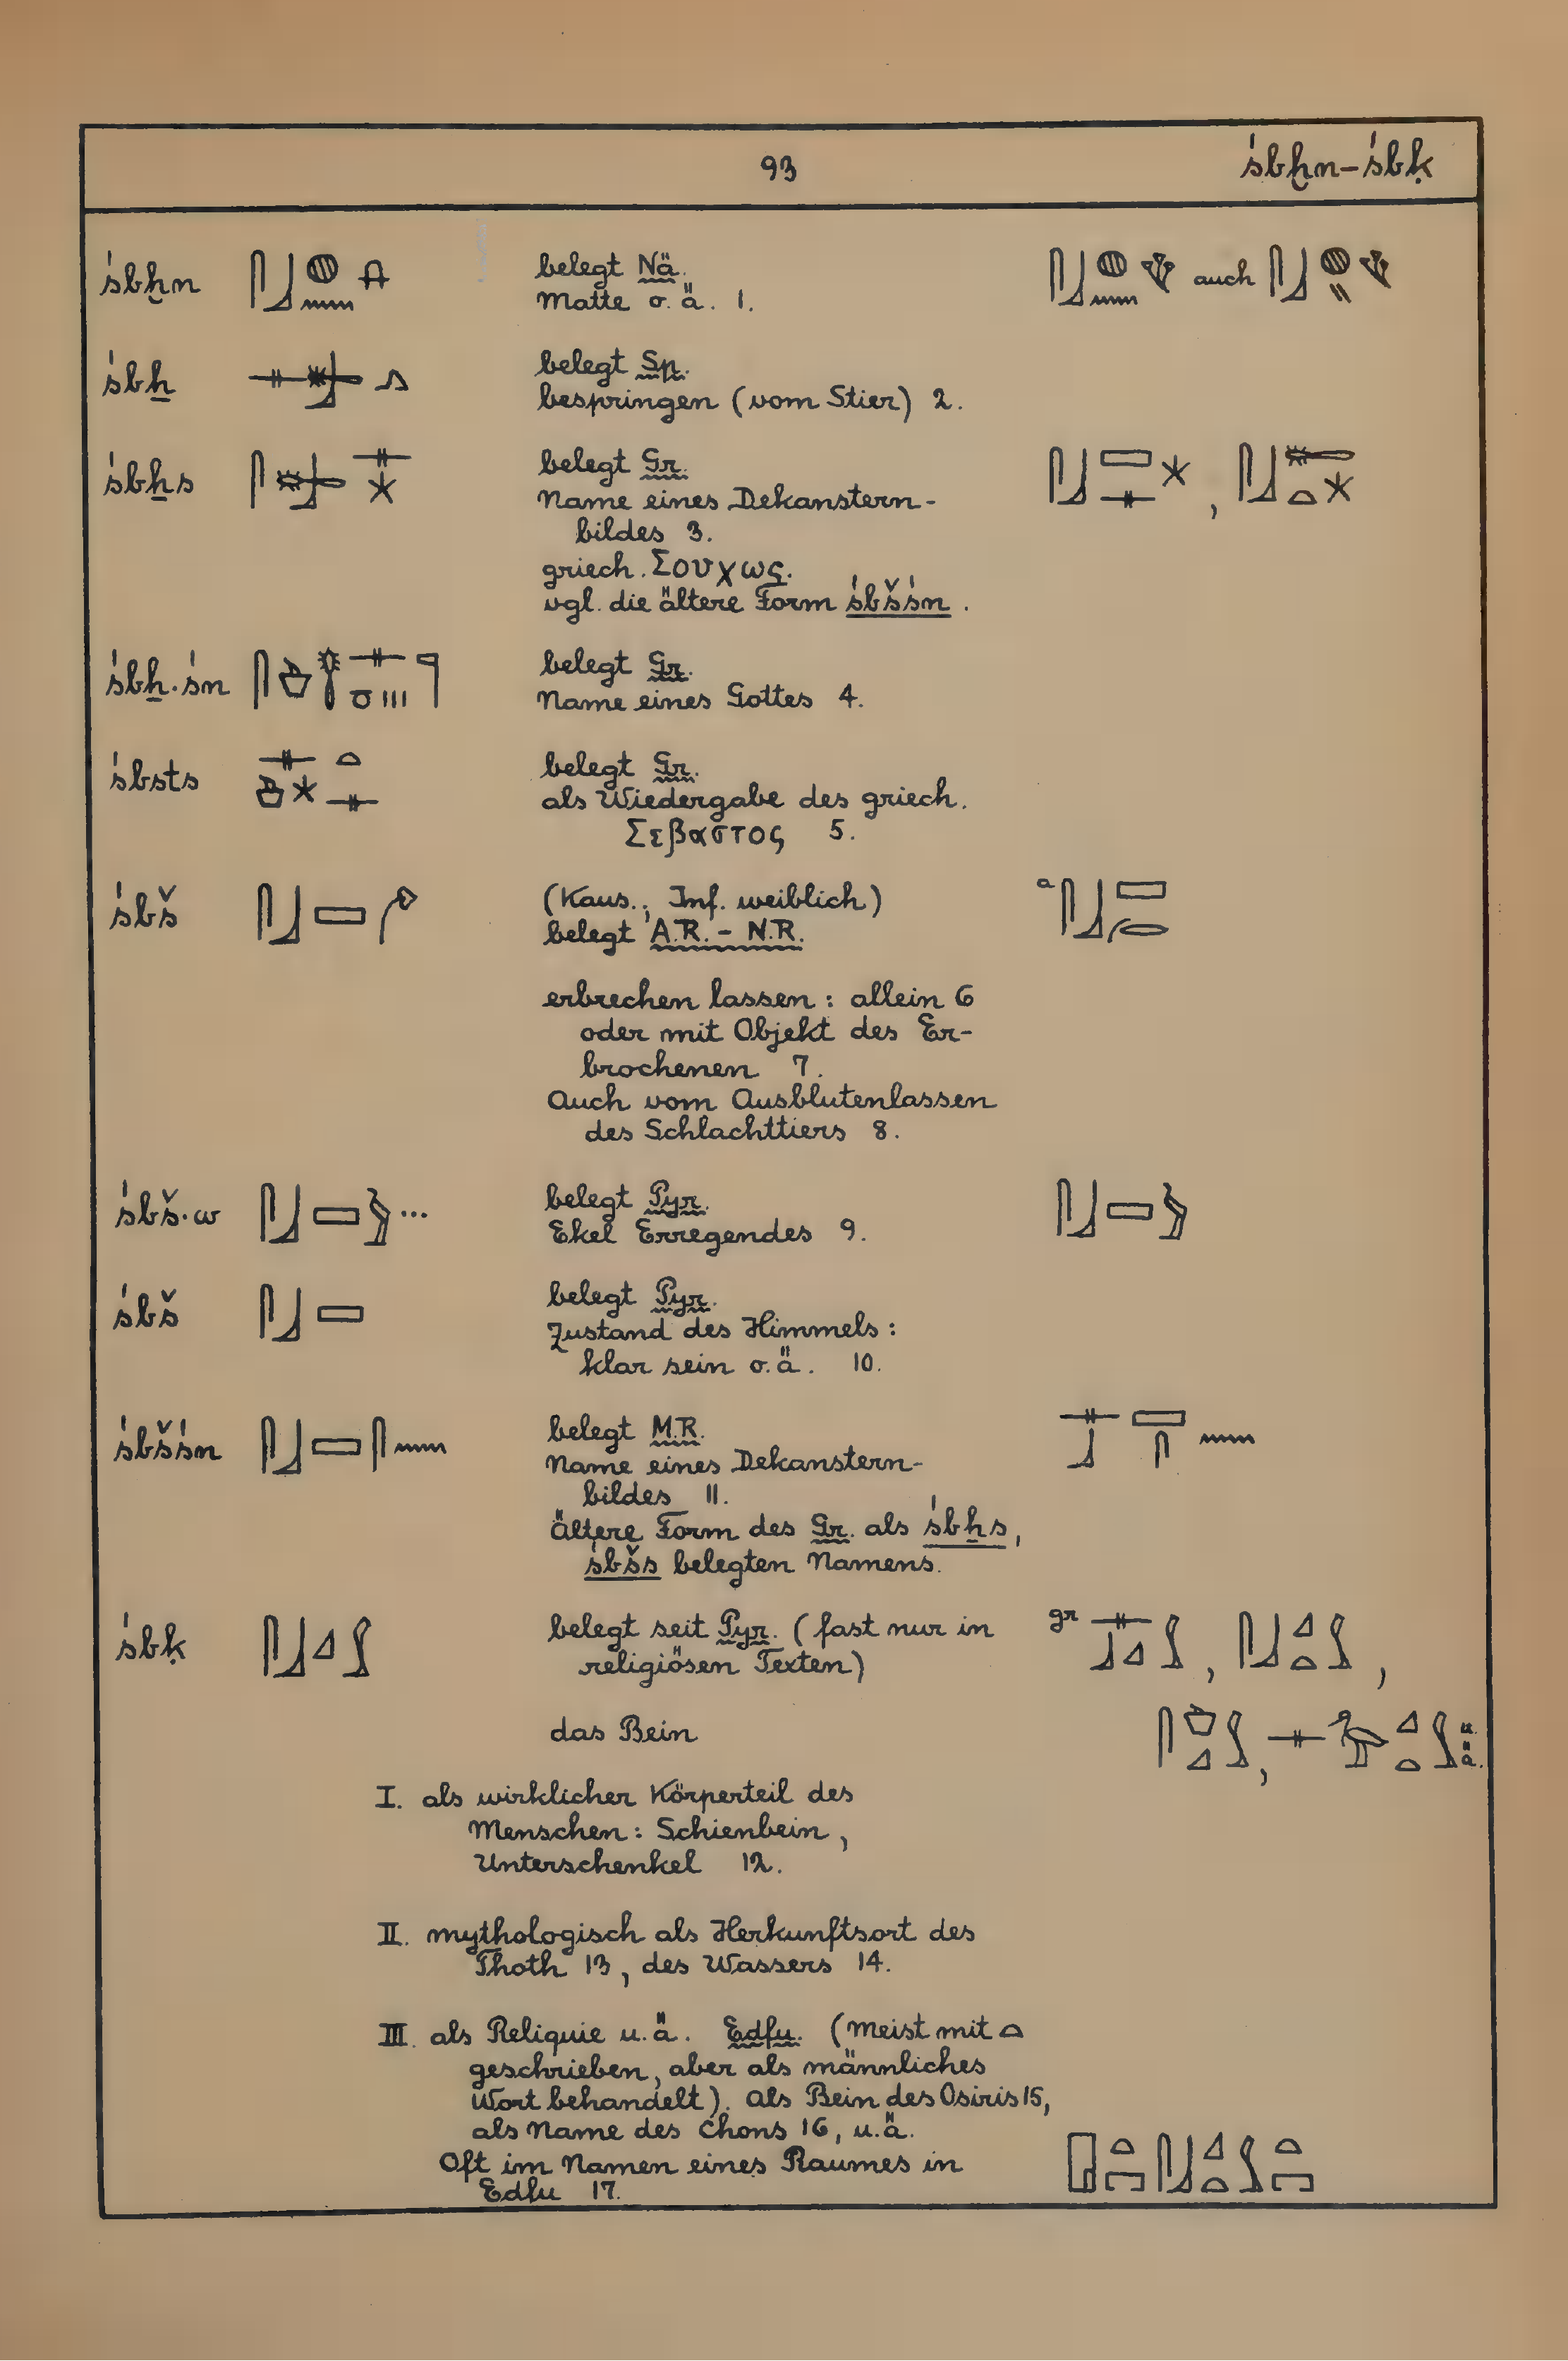 93
śbḫn–śbḳ
śbḫn
belegt Nä.
Matte o. ä. 1.
auch
śbẖ
belegt Sp.
bespringen (vom Stier) 2.
śbẖs
belegt Gr.
Name eines Dekanstern-
bildes 3.
griech. Σουχως.
vgl. die ältere Form śbšśn.
śbẖ·śn
belegt Gr.
Name eines Gottes 4.
śbsts
belegt Gr.
als Wiedergabe des griech.
Σεβαστος 5.
śbš
(Kaus.; Inf. weiblich)
a
belegt A.R. – N.R.
erbrechen lassen: allein 6
oder mit Objekt des Er-
brochenen 7.
Auch vom Ausblutenlassen
des Schlachttiers 8.
śbš·w
...
belegt Pyr.
Ekel Erregendes 9.
śbš
belegt Pyr.
Zustand des Himmels:
klar sein o.ä. 10.
śbšśn
belegt M.R.
Name eines Dekanstern-
bildes 11.
Ältere Form des Gr. als śbẖs,
śbšs belegten Namens.
śbḳ
belegt seit Pyr. (fast nur in
religiösen Texten)
gr
, ,
das Bein
, u.
ä.
I. als wirklicher Körperteil des
Menschen: Schienbein,
Unterschenkel 12.
II. mythologisch als Herkunftsort des
Thoth 13, des Wassers 14.
III. als Reliquie u.ä. Edfu. (meist mit 𓏏
geschrieben, aber als männliches
Wort behandelt). Als Bein des Osiris 15,
als Name des Chons 16, u.ä.
Oft im Namen eines Raumes in
Edfu 17.